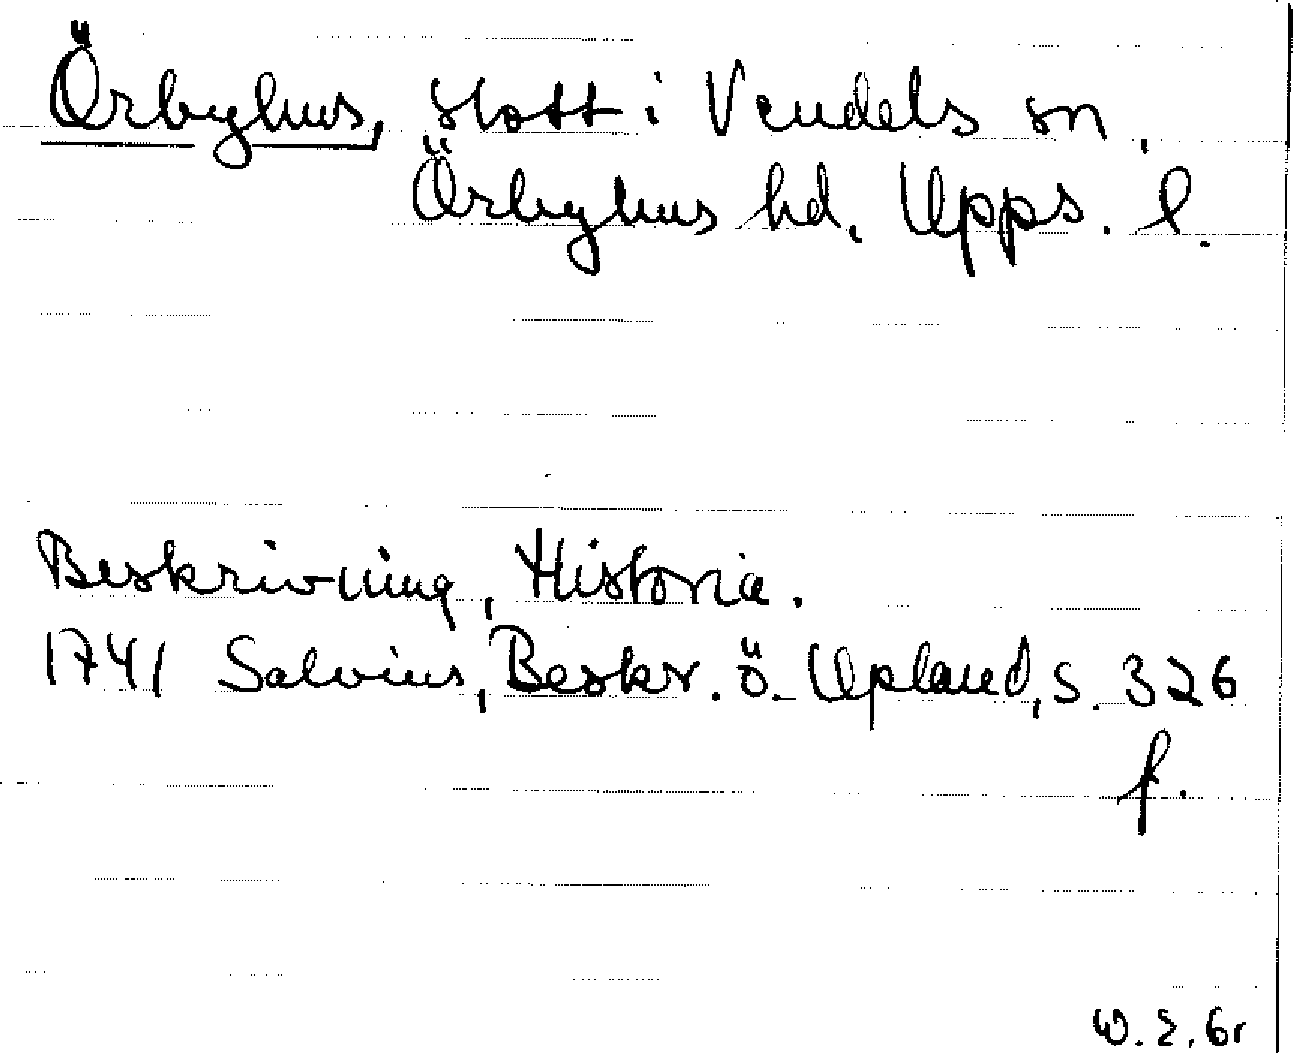 Örbyhus, slott i Vendels sn,
Örbyhus hd, Upps. l.
Beskrivning, Historia.
1741 Salvius, Beskr. ö. Upland, s. 326
f.
W. E. 61